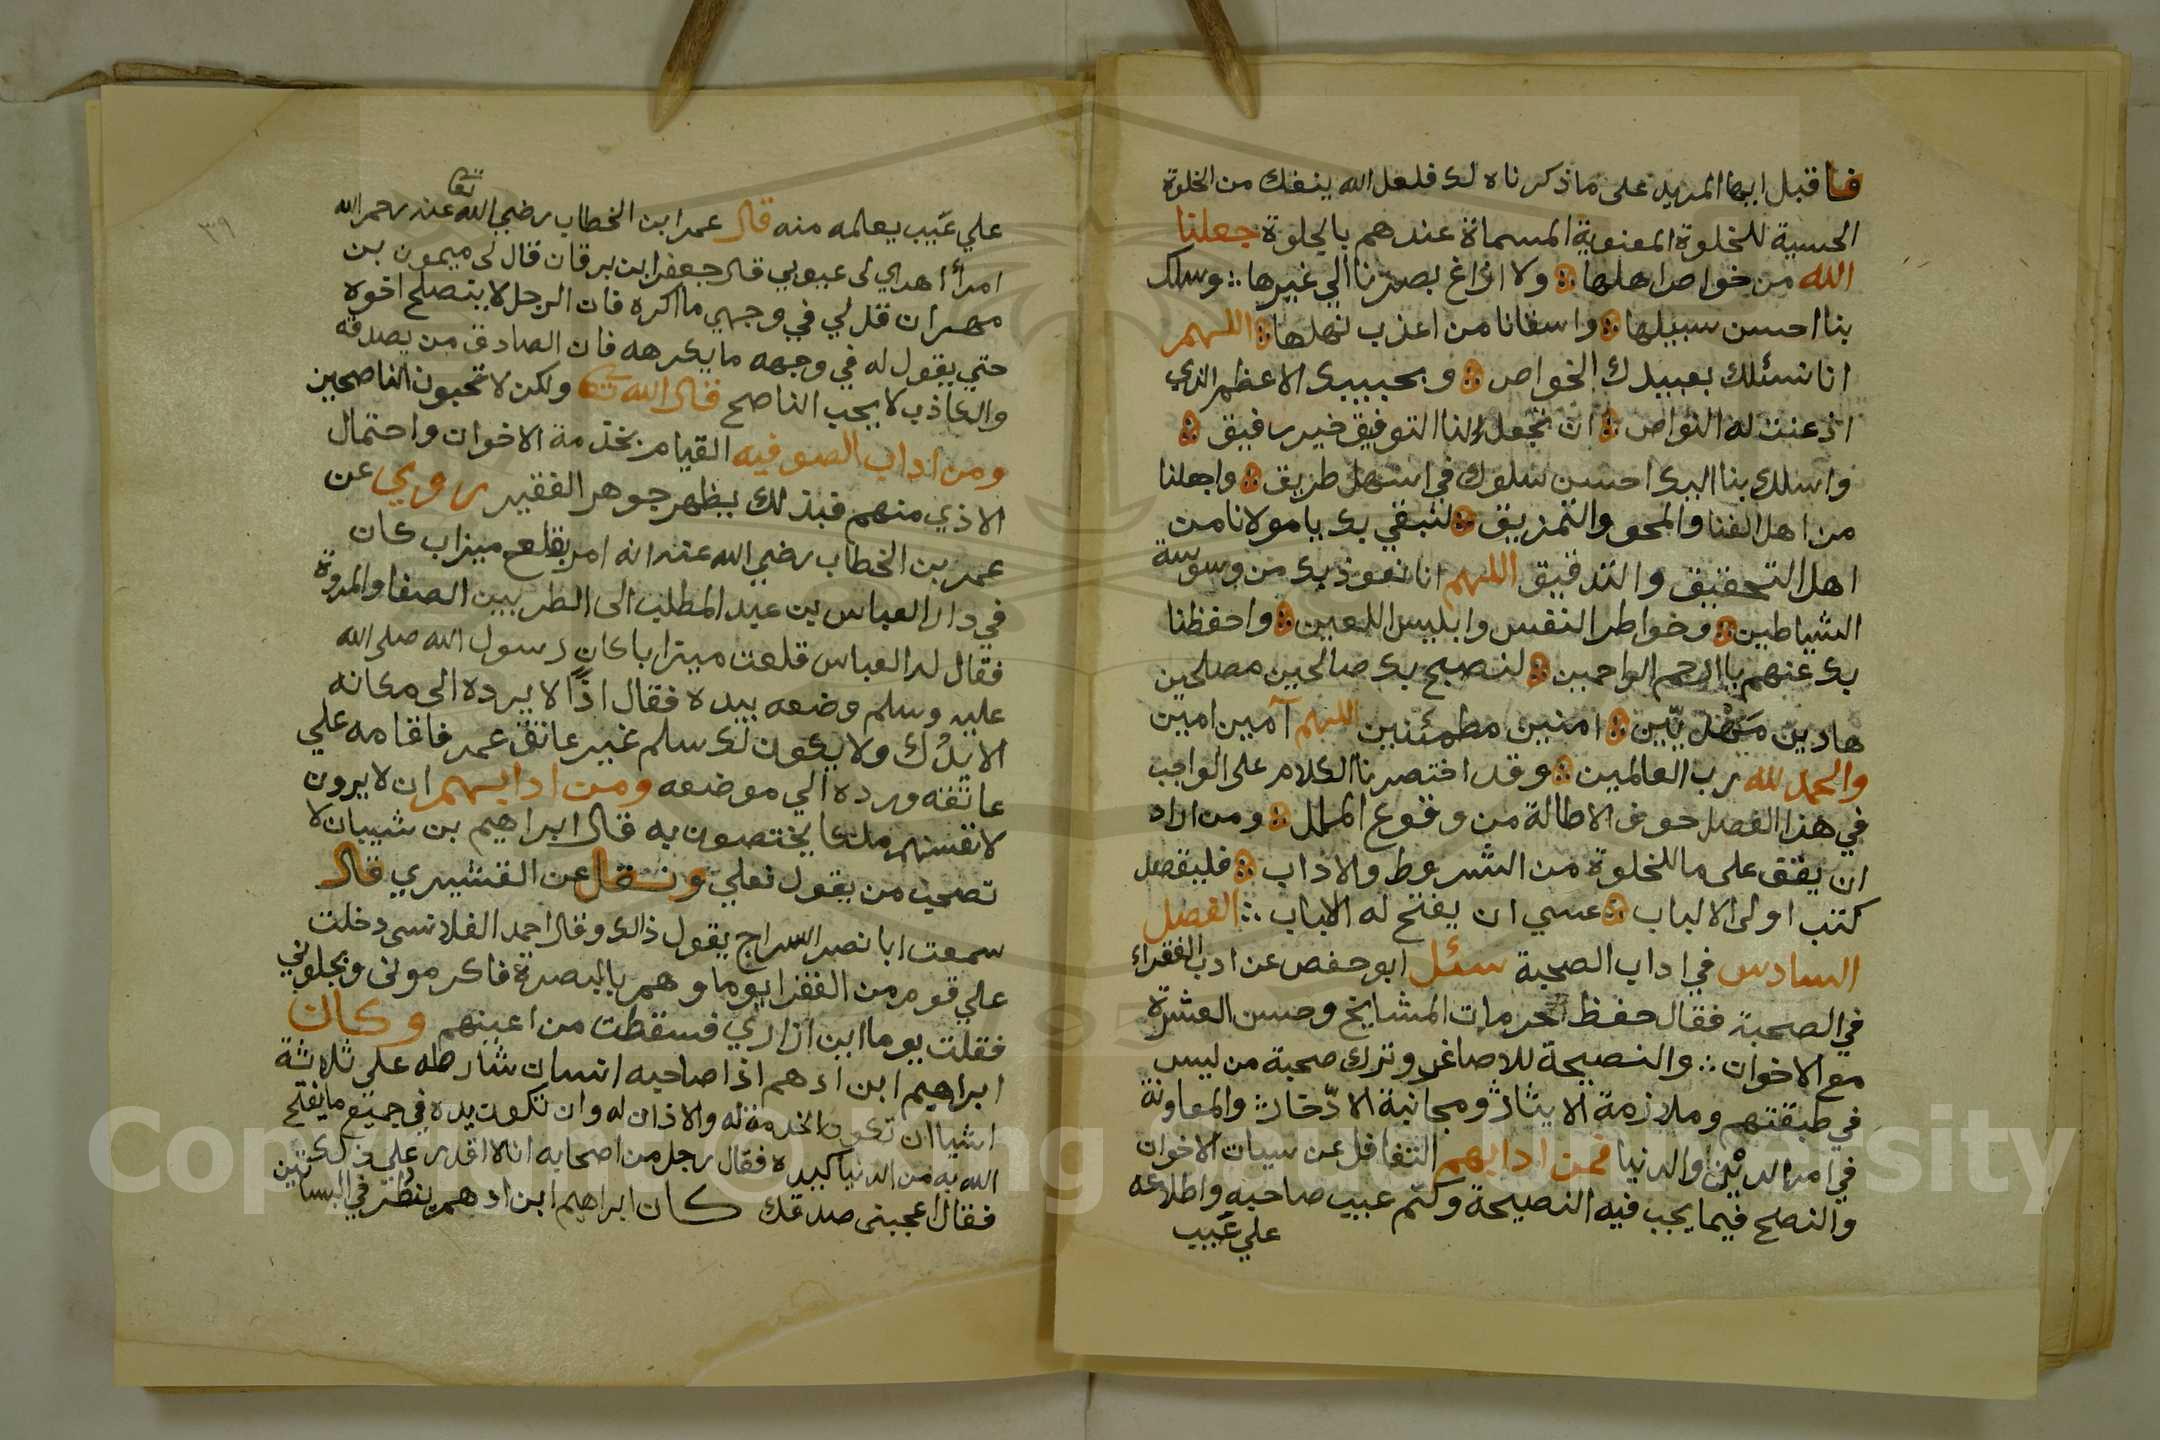 فاقبل ايها المريد على ما ذكرناه لك فلعل الله ينقك من الخلوة
الحسية للخلوة المعنوية المسماة عندهم بالجلوة جعلنا
الله من خواص اهلها ولا ازاغ بصرنا الي غيرها وسلك
بنا احسن سبيلها واسقانا من اعذب نهلها اللهم
انا نسئلك بعبيدك الخواص وبحبيبك الاعظم الذي
اذعنت له النواص ان تجعل لنا التوفيق خير رفيق
واسلك بنا اليك احسن سلوك في اسهل طريق واجعلنا
من اهل الفنا والمحو والتمزيق لنبقي بك يا مولانا من
اهل التحقيق والتدقيق اللهم انا نعوذ بك من وسوسة
الشياطين وخواطر النفس وابليس اللعين واحفظنا
بك عنهم يا ارحم الراحمين لنصبح بك صالحين مصلحين
هادين مهديين امنين مطمئنين اللهم آمين امين
والحمد لله رب العالمين وقد اختصرنا الكلام على الواجب
في هذا الفصل خوف الاطالة من وقوع الملل ومن اراد
ان يقف على ما للخلوة من الشروط والاداب فليقصد
كتب اولى الالباب عسي ان يفتح له الباب الفصل
السادس في اداب الصحبة سئل ابو حفص عن ادب الفقراء
في الصحبة فقال حفظ حرمات المشايخ وحسن العشرة
مع الاخوان والنصيحة للاصاغر وترك صحبة من ليس
في طبقتهم وملازمة الايثار ومجانبة الادخار والمعاونة
في امر الدين والدنيا فمن ادابهم التغافل عن سيات الاخوان
والنصح فيما يجب فيه النصيحة وكتم عيب صاحبه واطلاعه
علي عيب
علي عيب يعلمه منه قال عمر ابن الخطاب رضي الله تعا عنه رحم الله
امرأ اهدي لى عيوبي قال جعفر ابن برقان قال لى ميمون بن
مهران قل لي في وجهي ما اكره فان الرجل لا ينصح اخوه
حتي يقول له في وجهه ما يكرهه فان الصادق من يصدقه
والكاذب لا يحب الناصح قال الله تعا ولكن لا تحبون الناصحين
ومن اداب الصوفيه القيام بخدمة الاخوان واحتمال
الاذي منهم فبذلك يظهر جوهر الفقير روي عن
عمر بن الخطاب رضي الله عنه انه امر بقلع ميزاب كان
في دار العباس بن عبد المطلب الى الطر بين الصفا والمروة
فقال له العباس قلعت ميزابا كان رسول الله صلى الله
عليه وسلم وضعه بيده فقال اذًا لا يرده الى مكانه
الا يدك ولا يكون لك سلم غير عاتق عمر فاقامه علي
عاتقه ورده الي موضعه ومن ادابهم ان لا يرون
لانفسهم ملكا يختصون به قال ابراهيم بن شيبان لا
تصحب من يقول نعلي ونقل عن القشيري قال
سمعت ابا نصر السراج يقول ذالك وقال احمد القلانسى دخلت
علي قوم من الفقرا يوما وهم بالبصرة فاكرمونى وبجلوني
فقلت يوما اين ازاري فسقطت من اعينهم وكان
ابراهيم ابن ادهم اذا صاحبه انسان شارطه علي ثلاثة
اشيا ان تكون الخدمة له والاذان له وان تكون يده في جميع ما يفتح
الله به من الدنيا كيده فقال رجل من اصحابه انا لا اقدر علي ذلك
فقال اعجبنى صدقك كان ابراهيم ابن ادهم ينظر في البساتين
٣٩
Copyright © King Saud University